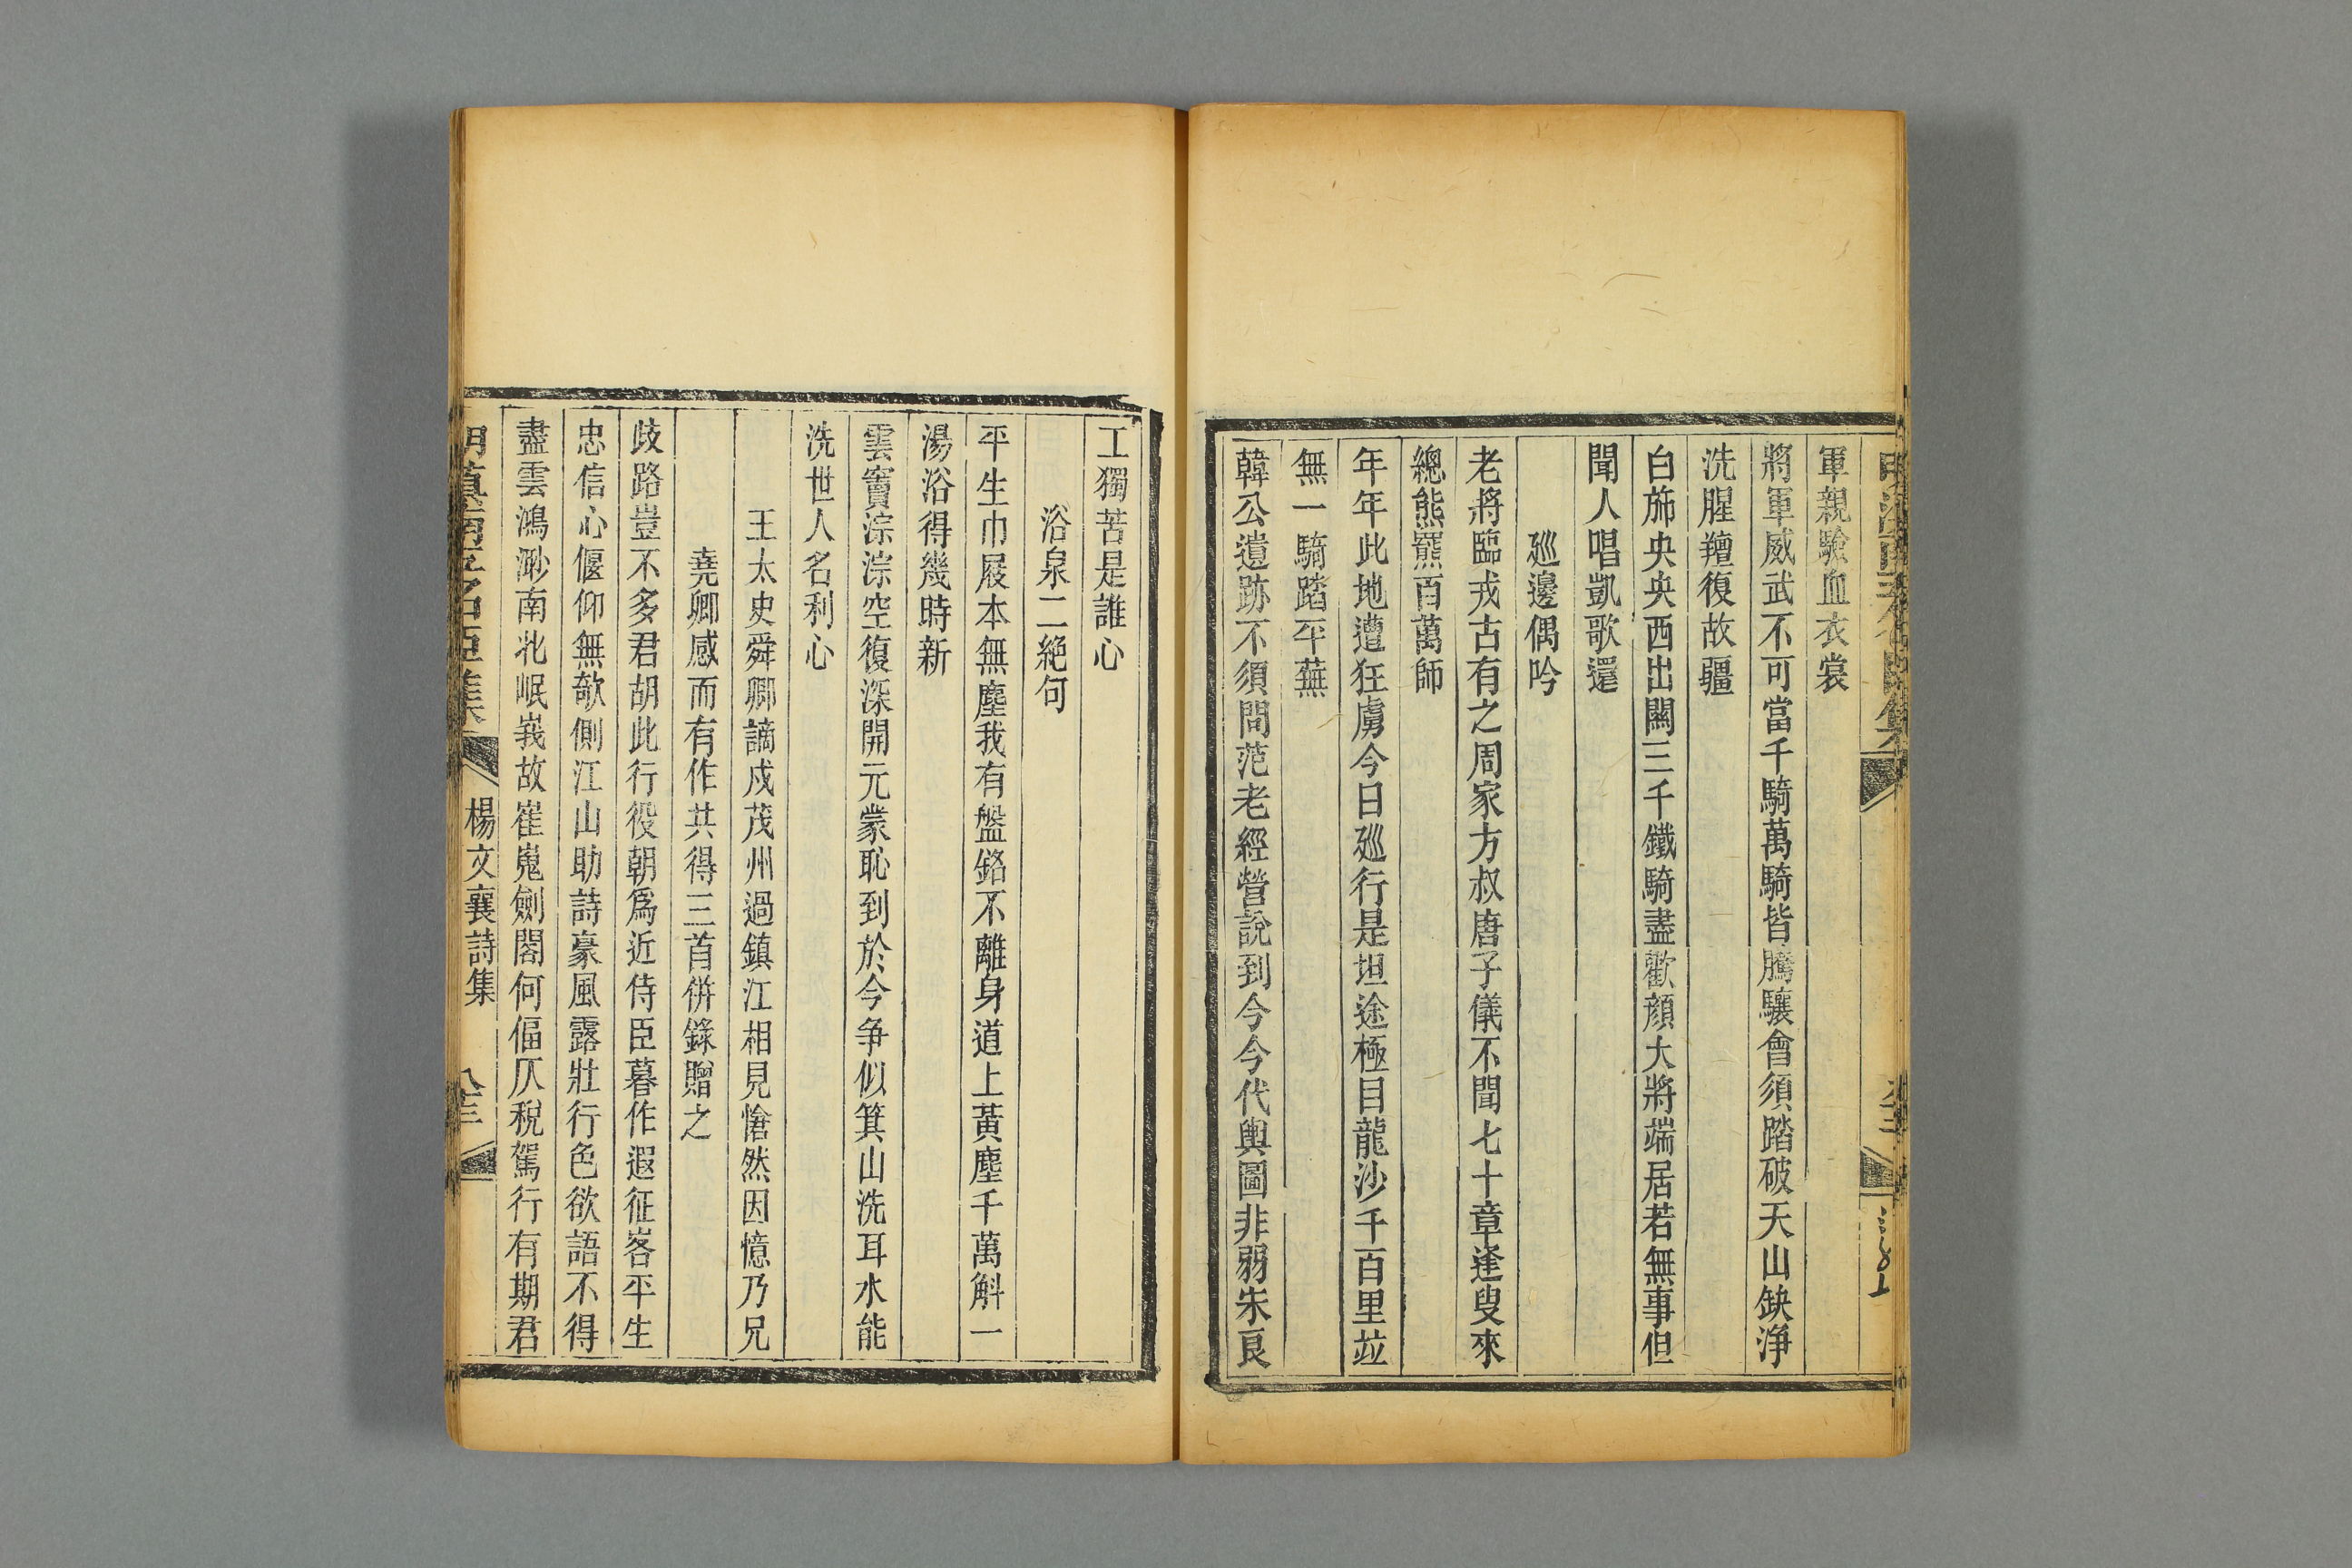 軍親驗血衣裳
將軍威武不可當千騎萬騎皆騰驤會須踏破天山缺淨
洗腥羶復故疆
白斾央央西出關三千鐵騎盡歡顔大將端居若無事但
聞人唱凱歌還
廵邊偶吟
老將臨戎古有之周家方叔唐子儀不聞七十章逢叟來
總熊羆百萬師
年年此地遭狂虜今日廵行是坦途極目龍沙千百里竝
無一騎踏平蕪
韓公遺跡不須問范老經營說到今今代輿圖非弱朱良
工獨苦是誰心
浴泉二絕句
平生巾屐本無塵我有盤銘不離身道上黃塵千萬斛一
湯浴得幾時新
雲竇淙淙空復深開元蒙恥到於今争似箕山洗耳水能
洗世人名利心
王太史舜卿謫戍茂州過鎮江相見愴然因憶乃兄
堯卿感而有作共得三首併錄贈之
歧路豈不多君胡此行役朝爲近侍臣暮作遐征客平生
忠信心偃仰無欹側江山助詩豪風露壯行色欲語不得
盡雲鴻渺南北岷峩故崔嵬劍閣何偪仄稅駕行有期君
楊文襄詩集